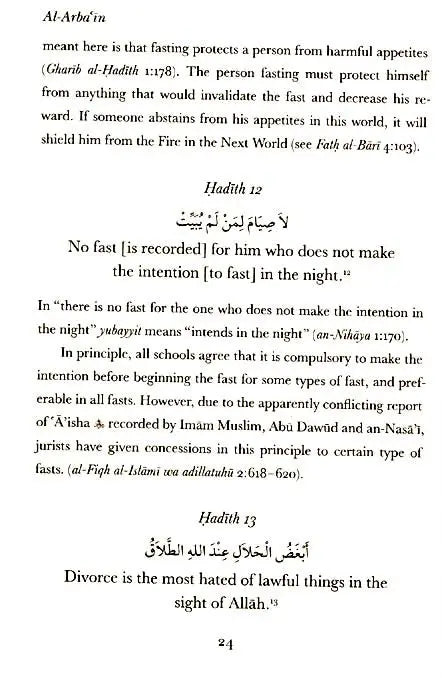 Al-Arbaʿīn
meant here is that fasting protects a person from harmful appetites
(Gharīb al-Ḥadīth 1:178). The person fasting must protect himself
from anything that would invalidate the fast and decrease his re-
ward. If someone abstains from his appetites in this world, it will
shield him from the Fire in the Next World (see Fatḥ al-Bārī 4:103).
Ḥadīth 12
لاَ صِيَامَ لِمَنْ لَمْ يُبَيِّتْ
No fast [is recorded] for him who does not make
the intention [to fast] in the night.¹²
In “there is no fast for the one who does not make the intention in
the night” yubayyit means “intends in the night” (an-Nihāya 1:170).
In principle, all schools agree that it is compulsory to make the
intention before beginning the fast for some types of fast, and pref-
erable in all fasts. However, due to the apparently conflicting report
of ʿĀʾisha recorded by Imām Muslim, Abū Dawūd and an-Nasāʾī,
jurists have given concessions in this principle to certain type of
fasts. (al-Fiqh al-Islāmī wa adillatuhū 2:618–620).
Ḥadīth 13
أَبْغَضُ الْحَلاَلِ عِنْدَ اللهِ الطَّلاَقُ
Divorce is the most hated of lawful things in the
sight of Allāh.¹³
24